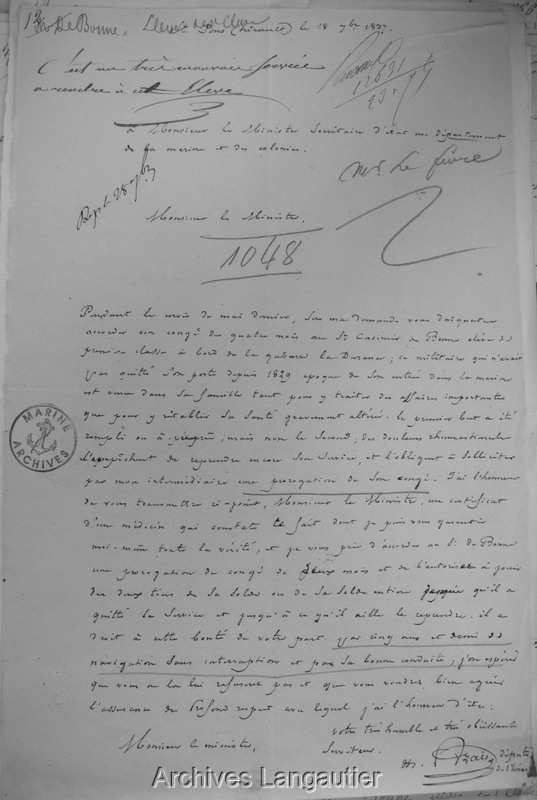 13
Mr De Bonne, Eleve de 1re Classe
St Pons (hérault) le 18 7bre 1837.
C'est un très mauvais service
a rendre à cet Eleve
à Monsieur le Ministre Secrétaire d'état au département
de la marine et des colonies.
Mr. Le fèvre
Rept. 28 7b
Monsieur le Ministre,
1048
Pendant le mois de mai dernier, sur ma demande vous daignates
accorder un congé de quatre mois au Sr. Casimir de Bonne élève de
première classe à bord de la gabare la Durance; ce militaire qui n'avait
pas quitté son poste depuis 1829 epoque de son entrée dans la marine
est venu dans sa famille tant pour y traiter des affaires importantes
que pour y rétablir sa santé gravement altérée. le premier but a été
rempli ou à peuprès, mais non le second; des douleurs rhumatismales
l'empêchent de reprendre encore son service, et l'obligent à solliciter
par mon intermédiaire une prorogation de son congé. J'ai l'honneur
de vous transmettre ci-joint, Monsieur le Ministre, un certificat
d'un médecin qui constate le fait dont je puis vous garantir
moi-même toute la vérité, et je vous prie d'accorder au Sr. de Bonne
une prorogation de congé de deux mois et de l'autoriser à jouir
des deux tiers de sa solde ou de sa solde entière depuis qu'il a
quitté le service et jusqu'à ce qu'il aille le reprendre. il a
droit à cette bonté de votre part par cinq ans et demi de
navigation sans interruption et par sa bonne conduite; j'ose espérer
que vous ne la lui refuserez pas et que vous voudrez bien agréer
l'assurance du profond respect avec lequel j'ai l'honneur d'être:
votre très humble et très obéissant
Serviteur.
Monsieur le ministre,
député
de l'hérault
MARINE
ARCHIVES
Archives Langautier